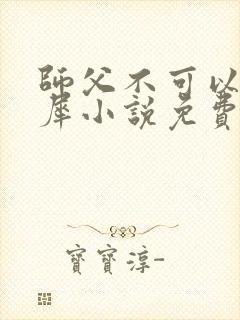 師父不可以
犀小說免費
寶寶淳-